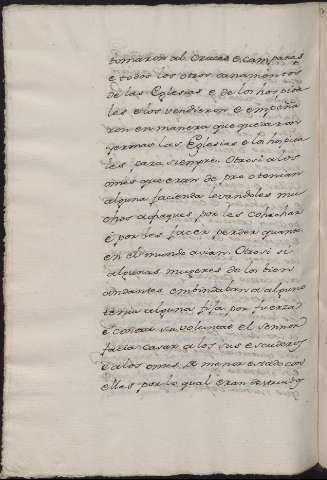 tomaron al Cruces e campanas
e todos los otros ornamentos
de las Eglesias e de los hospita
les e los vendieron e empeña
ron en manera que quedaron
yermas las Eglesias e los hospita
les para siempre. Otrosi a los
omes que eran de pro e tenian
alguna facienda levandoles mu
chos achaques por les cohechar
é por les facer perder quanto
en el mundo avian. Otrosi si
algunas mugeres de los bien
andantes embiudaban o alguno
tenia alguna fija por fuerza
é contra su voluntat el Sennor
facia casar a los sus escuderos
e a los omes de menor estado con
ellas, por lo qual eran destruidos